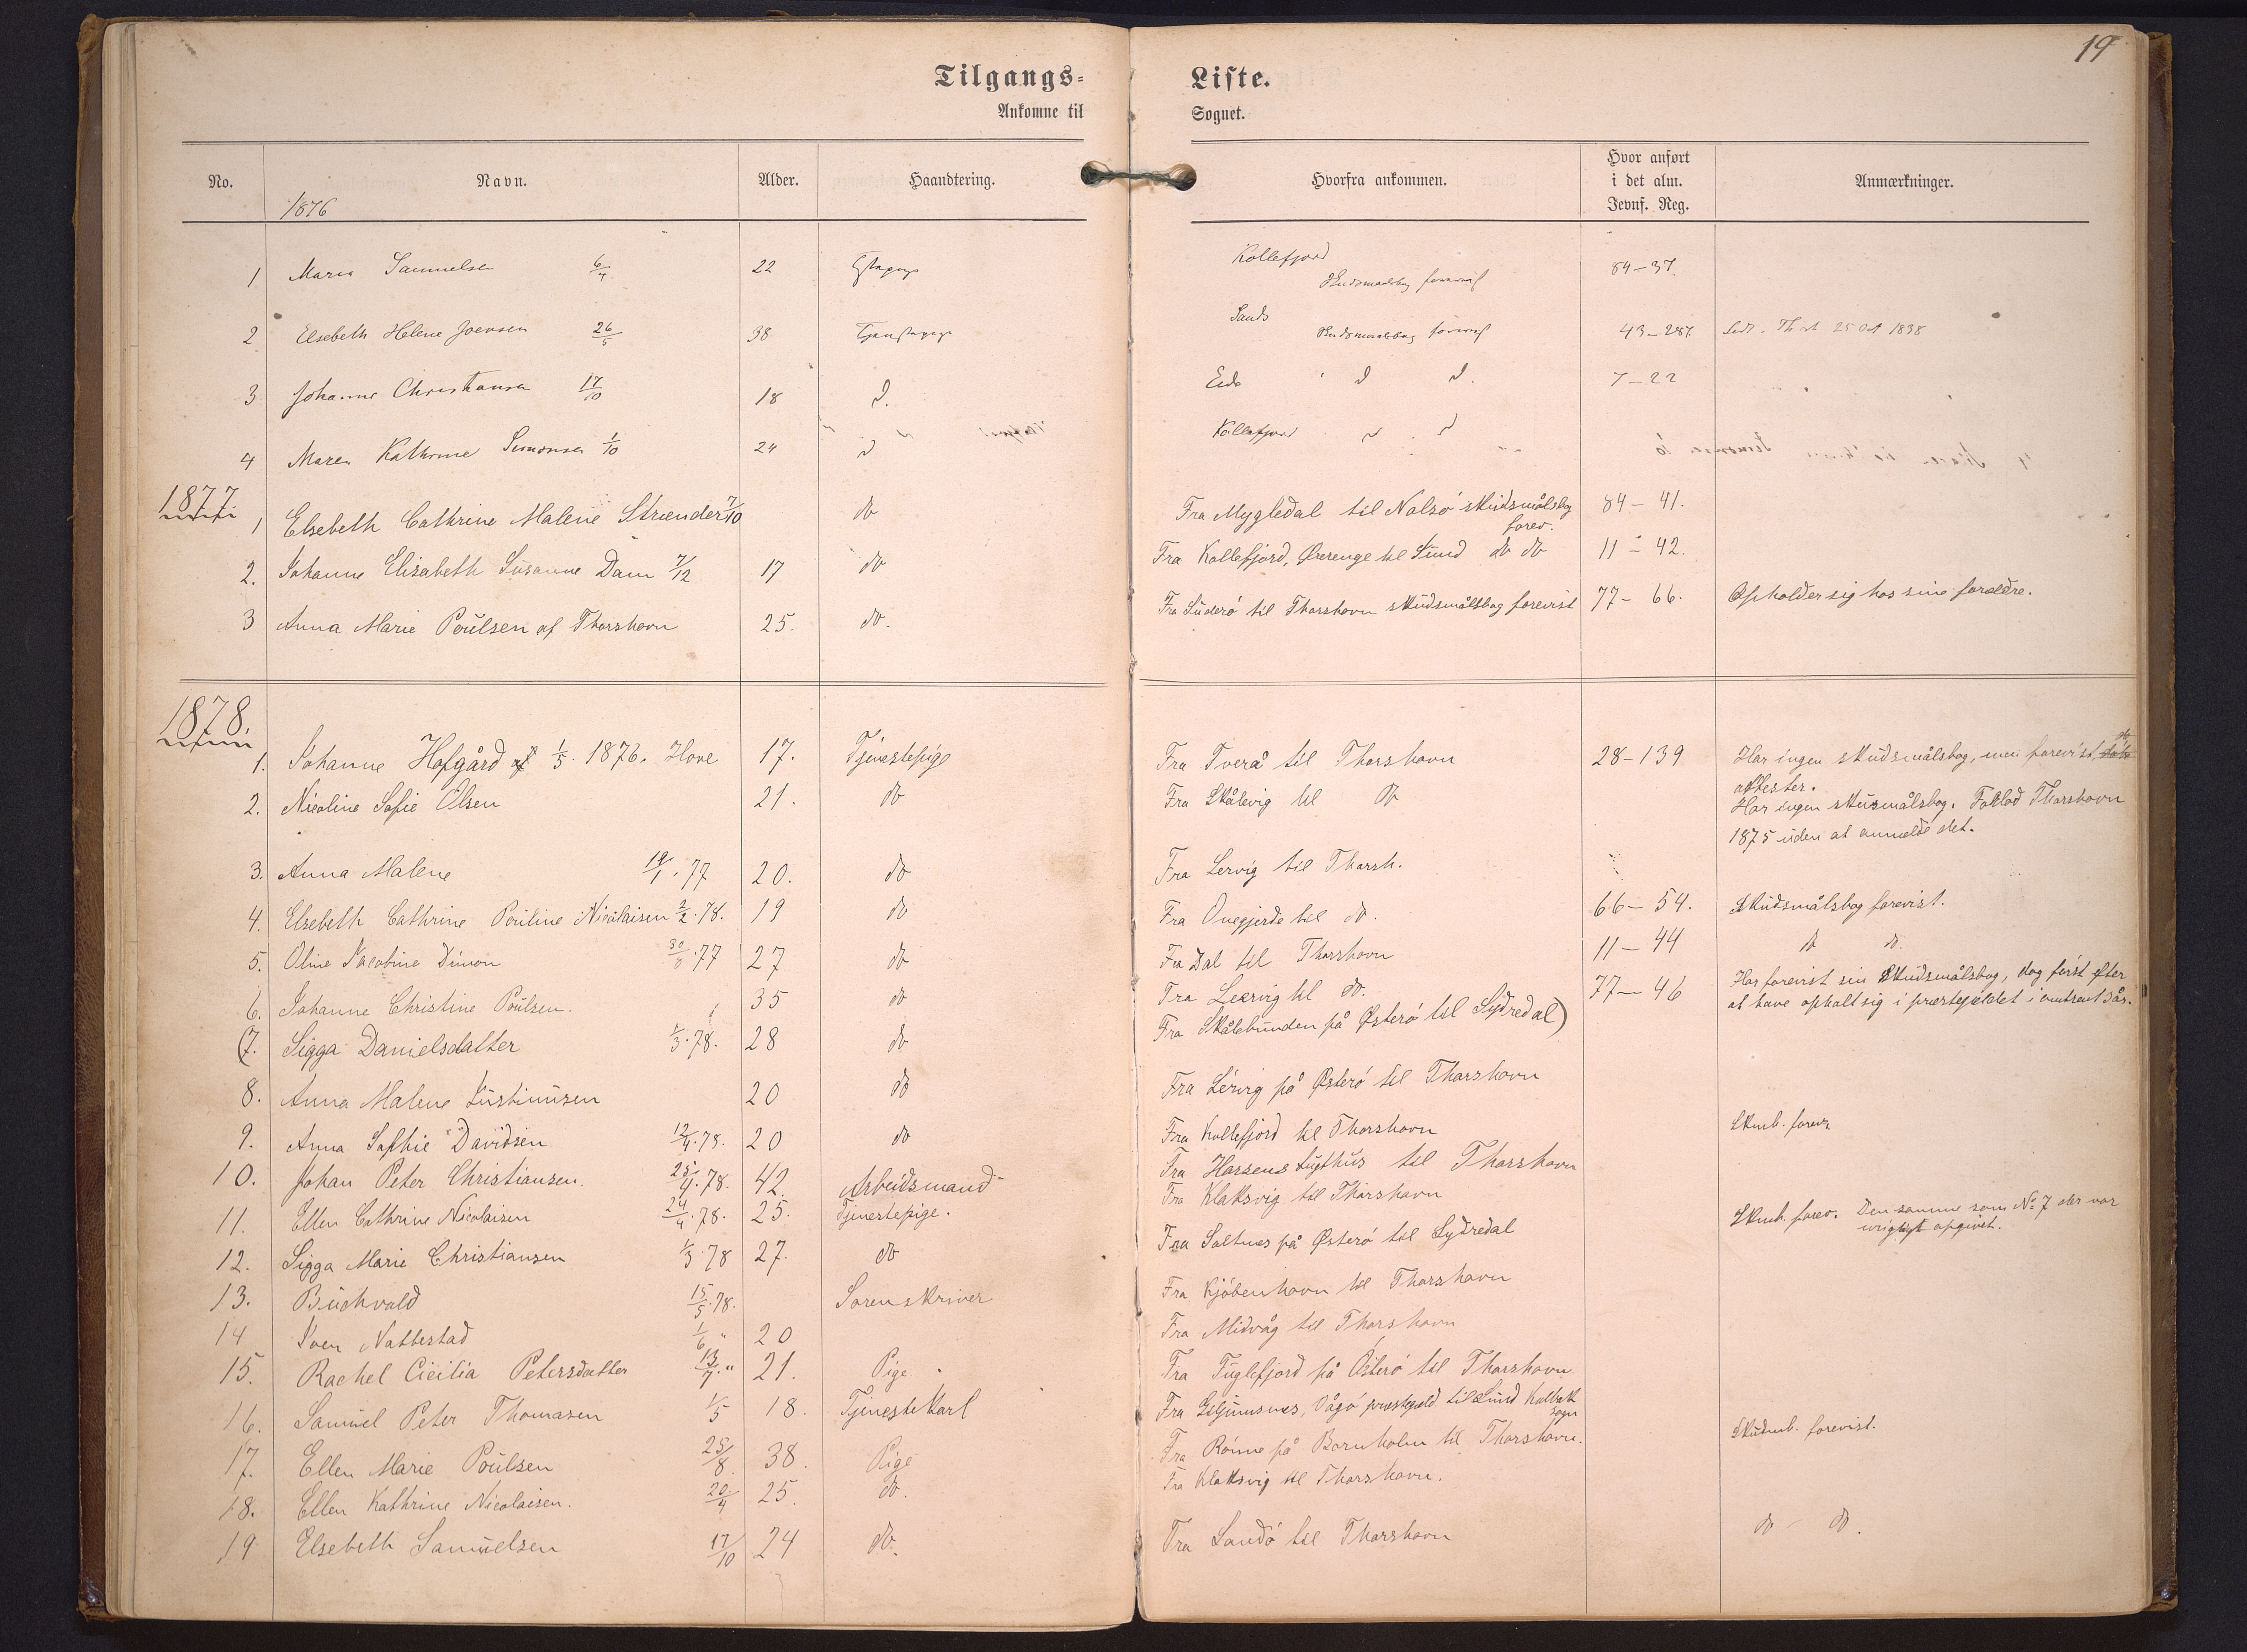 19
Tilgangs-Liste.
Ankomne til Sognet.
No. Navn. Alder. Haandtering. Hvorfra ankommen. Hvor anført i det alm. Jevnf. Reg. Anmærkninger.
1876
1 Maria Samuelsen 6/4 22 Kollefjord 84-37.
Skudsmaalsbog forevist
2 Elsebeth Helene Joensen 26/5 38 Sand 43-287. 25 Oct 1838
Skudsmaalsbog forevist
3 Johanne Christiansen 17/10 18 d. Eide d d. 7-22
4 Maren Kathrine Simonsen 1/10 24 d Kollefjord d d
1877
1 Elsebeth Cathrine Malene Strænder 7/10 do Fra Mygledal til Nolsö skudsmålsbog forev. 84-41.
2. Johanne Elisabeth Susanne Dam 7/12 17 do Fra Kollefjord, Ørerenge til Sund do do 11-42.
3 Anna Marie Poulsen af Thorshavn 25. do. Fra Suderö til Thorshavn skudsmålsbog forevist 77-66. Opholder sig hos sine forældre.
1878.
1. Johanne Hofgård af 1/5 1876. Hove 17. Tjenestepige Fra Tverå til Thorshavn 28-139 Har ingen skudsmålsbog, men forevist
attester.
2. Nicoline Sofie Olsen 21. do Fra Skålevig til do Har ingen skusmålsbog. Forlod Thorshavn
1875 uden at anmelde det.
3. Anna Malene 19/1.77 20. do Fra Lervig til Thorsh.
4. Elsebeth Cathrine Pouline Nicolaisen 2/2.78. 19 do Fra Onegjerde til do. 66-54. Skudsmålsbog forevist.
5. Oline Jacobine Dimon 77 27 do Fra Dal til Thorshavn 11-44 do do.
6. Johanne Christine Poulsen. 35 do Fra Leervig til do. 77-46 Har forevist sin Skudsmålsbog, dog först efter
at have opholt sig i præstegjældet i omtrent 3 år.
(7. Sigga Danielsdatter 1/3.78. 28 do Fra Skålebunden på Österö til Sydredal)
8. Anna Malene Justinusen 20 do Fra Lérvig på Österö til Thorshavn
9. Anna Sophie Davidsen 12/4.78. 20 do Fra Kollefjord til Thorshavn Skmb. forev.
10. Johan Peter Christiansen. 25/4.78. 42. Arbeidsmand Fra Horsens tugthus til Thorshavn
11. Ellen Cathrine Nicolaisen 24/4.78. 25. Tjenestepige. Fra Klaksvig til Thorshavn
12. Sigga Marie Christiansen 1/3.78 27. do Fra Saltnes på Österö til Sydredal Skmb. forev. Den samme som No 7 der var
urigtigt opgivet.
13. Buchvald 15/5.78. Sorenskriver Fra Kjöbenhavn til Thorshavn
14 Sven Nattestad 1/6 " 20 Fra Midvåg til Thorshavn
15. Rachel Cicilia Petersdatter 13/7 " 21. Pige Fra Fuglefjord på Österö til Thorshavn
16. Samuel Peter Thomasen 1/5 18. Tjenestekarl Fra Giljumsnes, Vågö præstegæld til Sund Kalbak sogn
17. Ellen Marie Poulsen 25/8. 38. Pige Fra Rönne på Bornholm til Thorshavn. Skudmb. forevist.
18. Ellen Kathrine Nicolaisen. 20/4 25. do. Fra Klaksvig til Thorshavn.
19 Elsebeth Samuelsen 17/10 24 do. Fra Sandö til Thorshavn do - do.